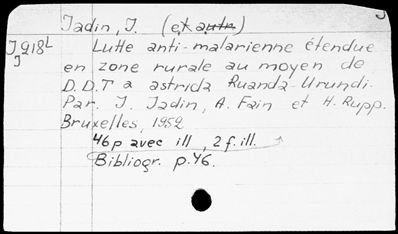 Jadin, J. (et autr.)
J 918L Lutte anti-malarienne étendue
J
en zone rurale au moyen de
D.D.T a astrida Ruanda-Urundi.
Par. J. Jadin, A. Fain et H. Rupp.
Bruxelles, 1952
46p avec ill, 2 f. ill.
Bibliogr. p.46.